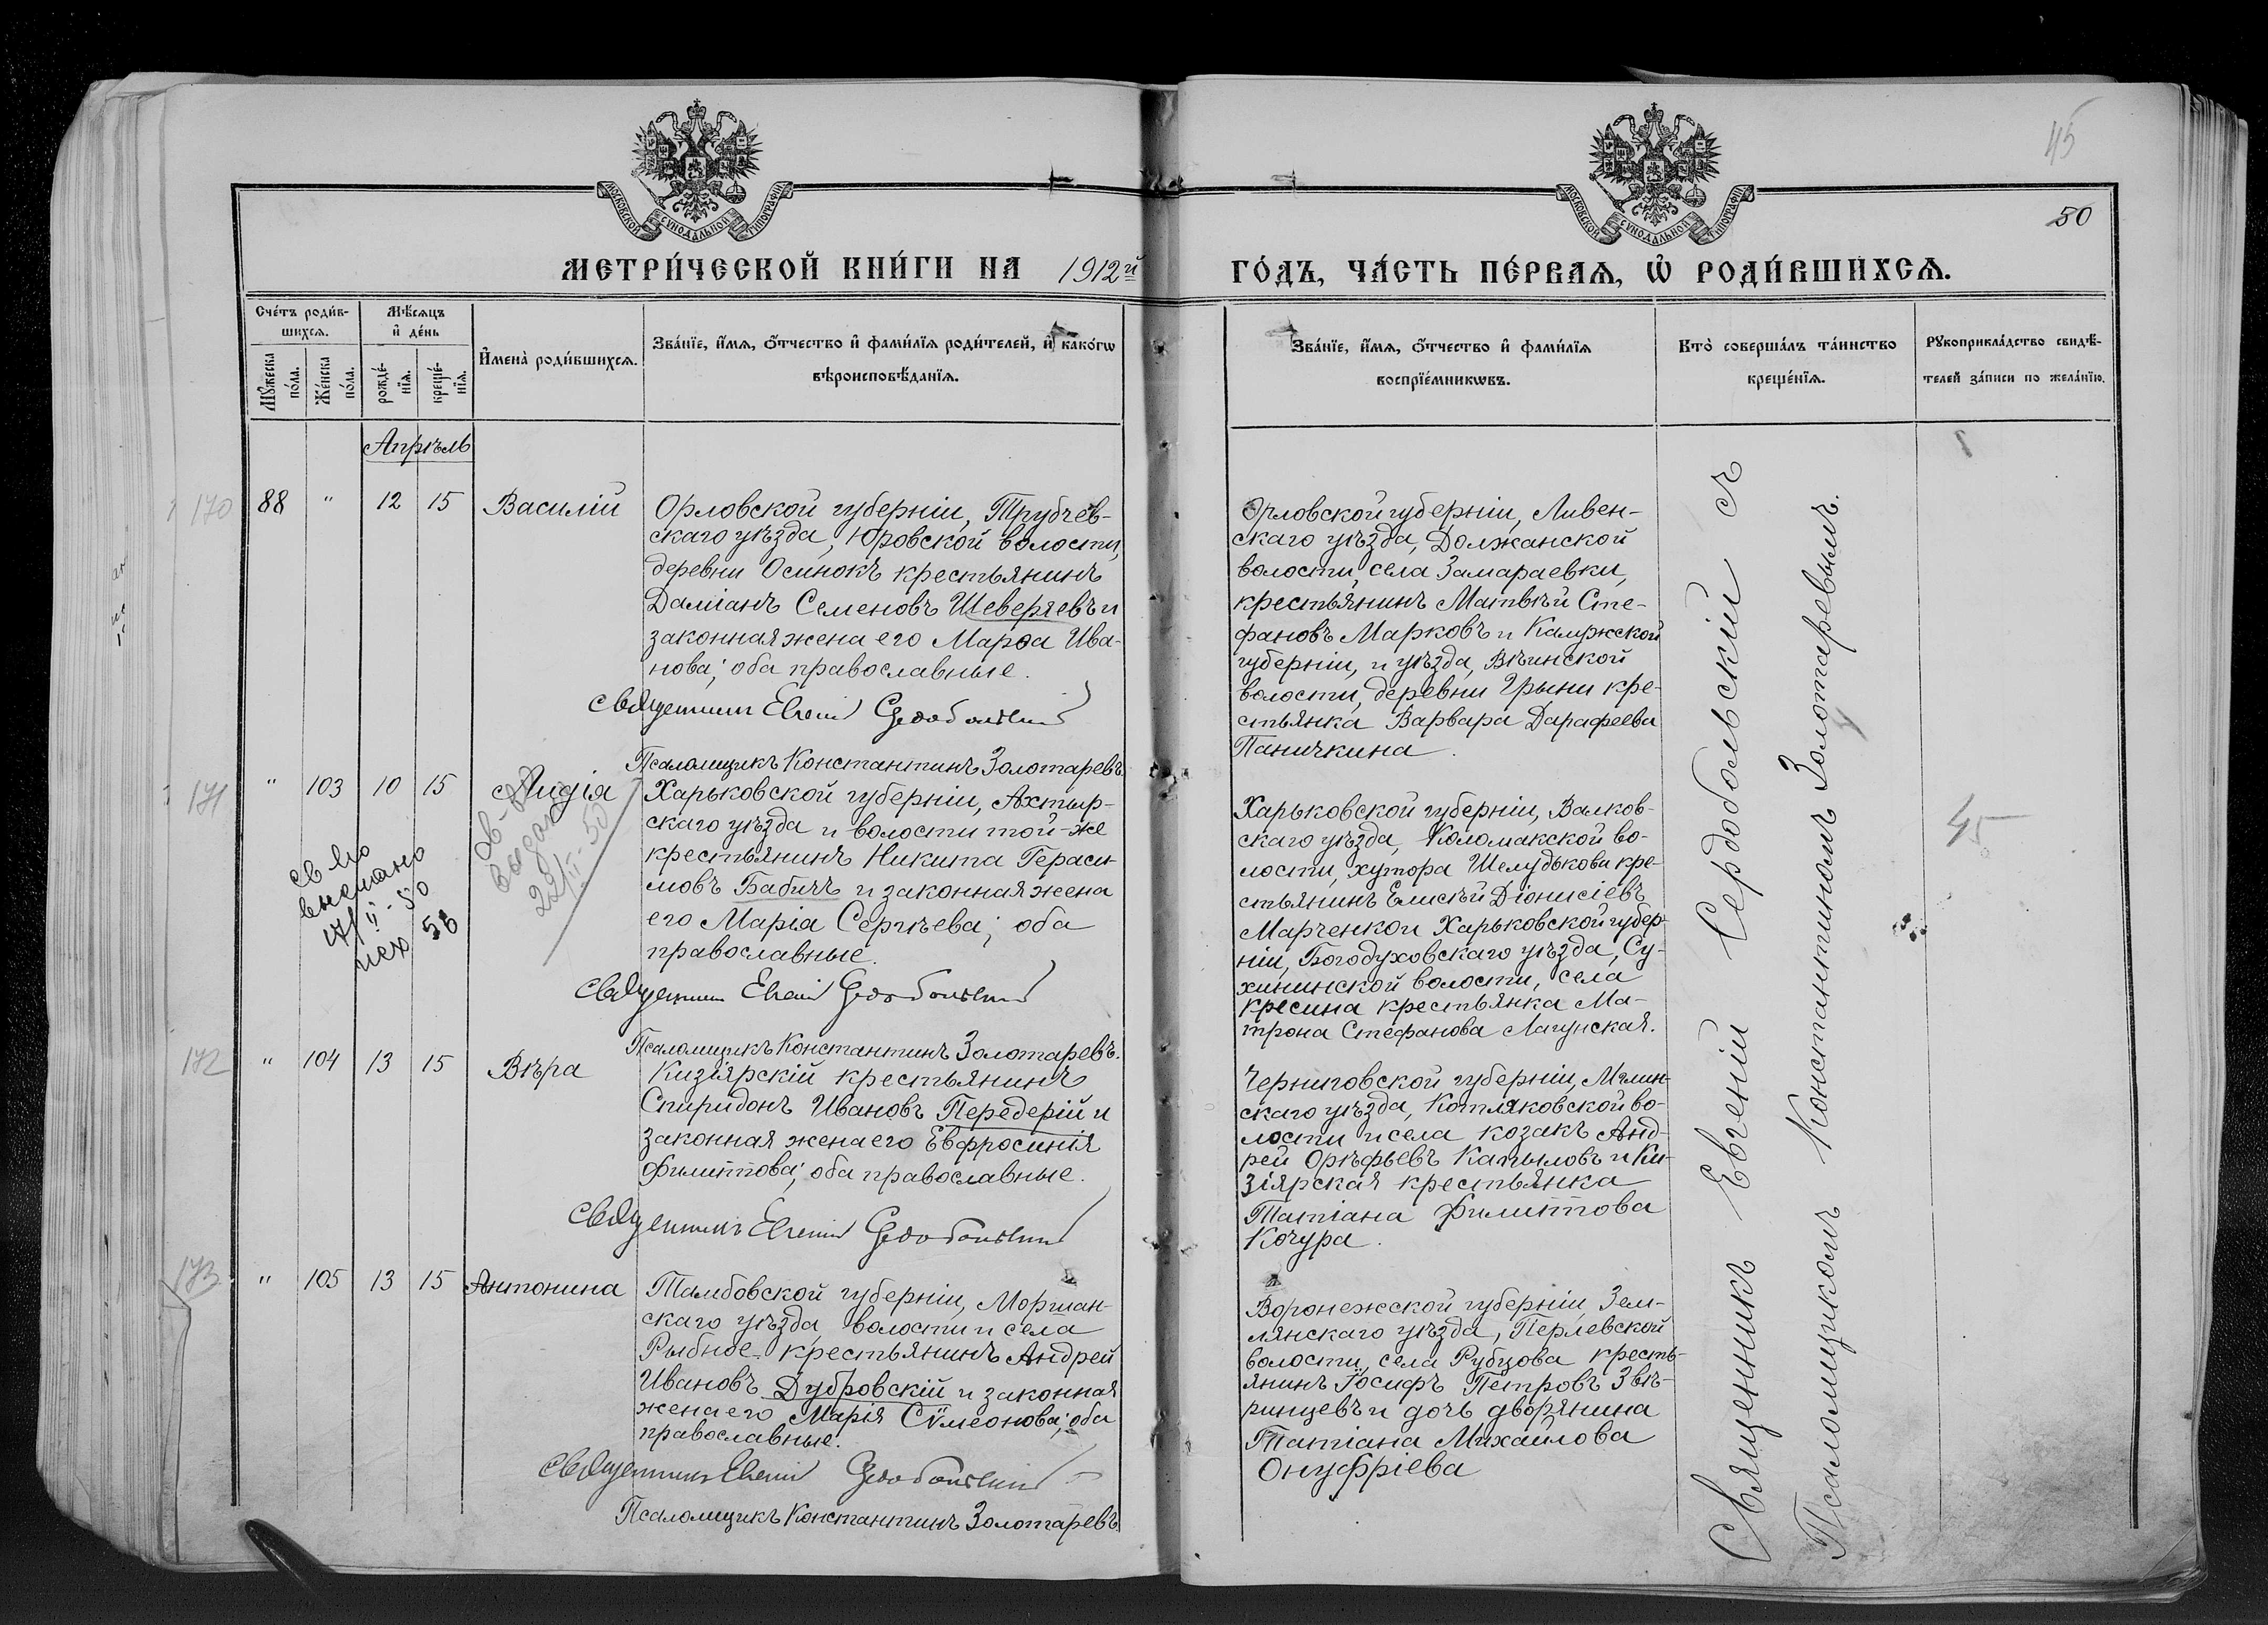 45
50
МОСКОВСКОЙ СѴНОДАЛЬНОЙ ТИПОГРАФІИ
МОСКОВСКОЙ СѴНОДАЛЬНОЙ ТИПОГРАФІИ
МЕТРИ́ЧЕСКОЙ КНИ́ГИ НА 1912й
ГО́ДЪ, ЧА́СТЬ ПЕ́РВАѦ, Ѡ҆ РОДИ́ВШИХСѦ.
Сче́тъ роди́в-
шихсѧ.
Мꙋ́жеска по́ла.
Же́нска по́ла.
Мѣ́сѧцъ
и҆ де́нь
рожде́-
нїѧ.
креще́-
нїѧ.
И҆мена̀ роди́вшихсѧ.
Зва́нїе, и҆́мѧ, ѻ҆́тчество и҆ фами́лїѧ роди́телей, и҆ како́гѡ
вѣроисповѣ́данїѧ.
Зва́нїе, и҆́мѧ, ѻ҆́тчество и҆ фами́лїѧ
воспрїе́мникѡвъ.
Кто̀ соверша́лъ та́инство
креще́нїѧ.
Рꙋкоприкла́дство свидѣ́-
телей за́писи по жела́нїю.
Апрѣль
170
88 " 12 15 Василій
Орловской губерніи, Трубчев-
скаго уѣзда, Юровской волости,
деревни Осинокъ крестьянинъ
Даміанъ Семеновъ Шеверяевъ и
законная жена его Марѳа Ива-
нова; оба православные.
Священникъ Евгеній Сердобольскій
Псаломщикъ Константинъ Золотаревъ.
Орловской губерніи, Ливен-
скаго уѣзда, Должанской
волости, села Замараевки,
крестьянинъ Матвѣй Сте-
фановъ Марковъ и Калужской
губерніи, и уѣзда, Вѣинской
волости, деревни Грыни кре-
стьянка Варвара Дарафеева
Паничкина.
171
" 103 10 15 Лидія
св-во
выслано
II - 50
исх 56
св-во
выдано
22/II-50
Харьковской губерніи, Ахтыр-
скаго уѣзда и волости той-же
крестьянинъ Никита Гераси-
мовъ Бабичъ и законная жена
его Марія Сергѣева; оба
православные.
Священникъ Евгеній Сердобольскій
Псаломщикъ Константинъ Золотаревъ.
Харьковской губерніи, Валков-
скаго уѣзда, Коломакской во-
лости, хутора Шелудькова кре-
стьянинъ Елисѣй Діонисіевъ
Марченко и Харьковской губер-
ніи, Богодуховскаго уѣзда, Су-
хининской волости, села
Кресина крестьянка Ма-
трона Стефанова Лагунская.
45
172
" 104 13 15 Вѣра
Кизіярскій крестьянинъ
Спиридонъ Ивановъ Передерій и
законная жена его Евфросинія
Филиппова; оба православные.
Священникъ Евгеній Сердобольскій
Черниговской губерніи, Мглин-
скаго уѣзда, Котляковской во-
лости и села козакъ Анд-
рей Орѣфьевъ Капыловъ и Ки-
зіярская крестьянка
Татіана Филиппова
Кочура.
173
" 105 13 15 Антонина
Тамбовской губерніи, Моршан-
скаго уѣзда, волости и села
Рыбное крестьянинъ Андрей
Ивановъ Дубровскій и законная
жена его Марія Сѵмеонова; оба
православные.
Священникъ Евгеній Сердобольскій
Псаломщикъ Константинъ Золотаревъ.
Воронежской губерніи, Зем-
лянскаго уѣзда, Перлевской
волости, села Рубцова кресть-
янинъ Іосифъ Петровъ Звѣ-
ринцевъ и дочь дворянина
Татіана Михайлова
Онуфріева
Священникъ Евгеній Сердобольскій съ
Псаломщикомъ Константиномъ Золотаревымъ.